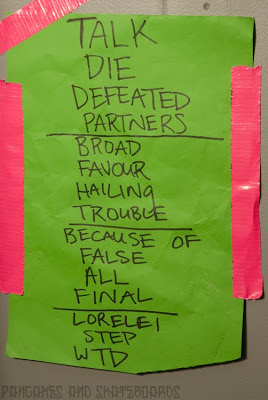 TALK
DIE
DEFEATED
PARTNERS
BROAD
FAVOUR
HAILING
TROUBLE
BECAUSE OF
FALSE
ALL
FINAL
LORELEI
STEP
WTD
PANCAKES AND SKATEBOARDS